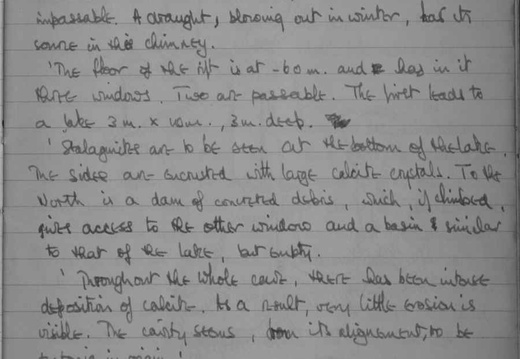 impassable. A draught, blowing out in winter, has its
source in this chimney.
'The floor of the rift is at -60 m. and has in it
three windows. Two are passable. The first leads to
a lake 3 m. x 10 m., 3 m. deep.
'Stalagmites are to be seen at the bottom of the lake.
The sides are encrusted with large calcite crystals. To the
North is a dam of concreted debris, which, if climbed,
gives access to the other window and a basin similar
to that of the lake, but empty.
'Throughout the whole cave, there has been intense
deposition of calcite. As a result, very little erosion is
visible. The cavity seems, from its alignment, to be
tectonic in origin.'